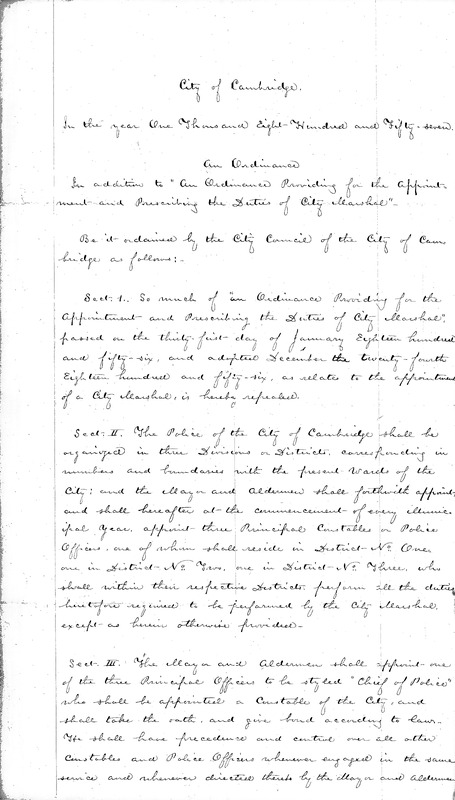 City of Cambridge.
In the year One Thousand Eight-Hundred and Fifty-seven.
An Ordinance
In addition to "An Ordinance Providing for the Appoint-
ment and Prescribing the Duties of City Marshal"-
Be it ordained by the City Council of the City of Cam
bridge as follows:-
Sect. I. So much of "an Ordinance Providing for the
Appointment and Prescribing the Duties of City Marshal",
passed on the thirty-first day of January Eighteen hundred
and fifty-six, and adopted December the twenty-fourth
Eighteen hundred and fifty-six, as relates to the appointment
of a City Marshal, is hereby repealed.
Sect. II. The Police of the City of Cambridge shall be
organized in three Divisions or Districts, corresponding in
numbers and boundaries with the present Wards of the
City; and the Mayor and Aldermen shall forthwith appoint,
and shall hereafter at the commencement of every Munic
ipal Year, appoint three Principal Constables or Police
Officers, one of whom shall reside in District No. One,
one in District No. Two, one in District No. Three, who
shall within their respective Districts, perform all the duties
heretofore required to be performed by the City Marshal,
except as herein otherwise provided-
Sect. III. The Mayor and Aldermen shall appoint one
of the three Principal Officers to be styled "Chief of Police"
who shall be appointed a Constable of the City, and
shall take the oath, and give bond according to law.
He shall have precedence and control over all other
Constables and Police Officers whenever engaged in the same
service and whenever directed thereto by the Mayor and Aldermen